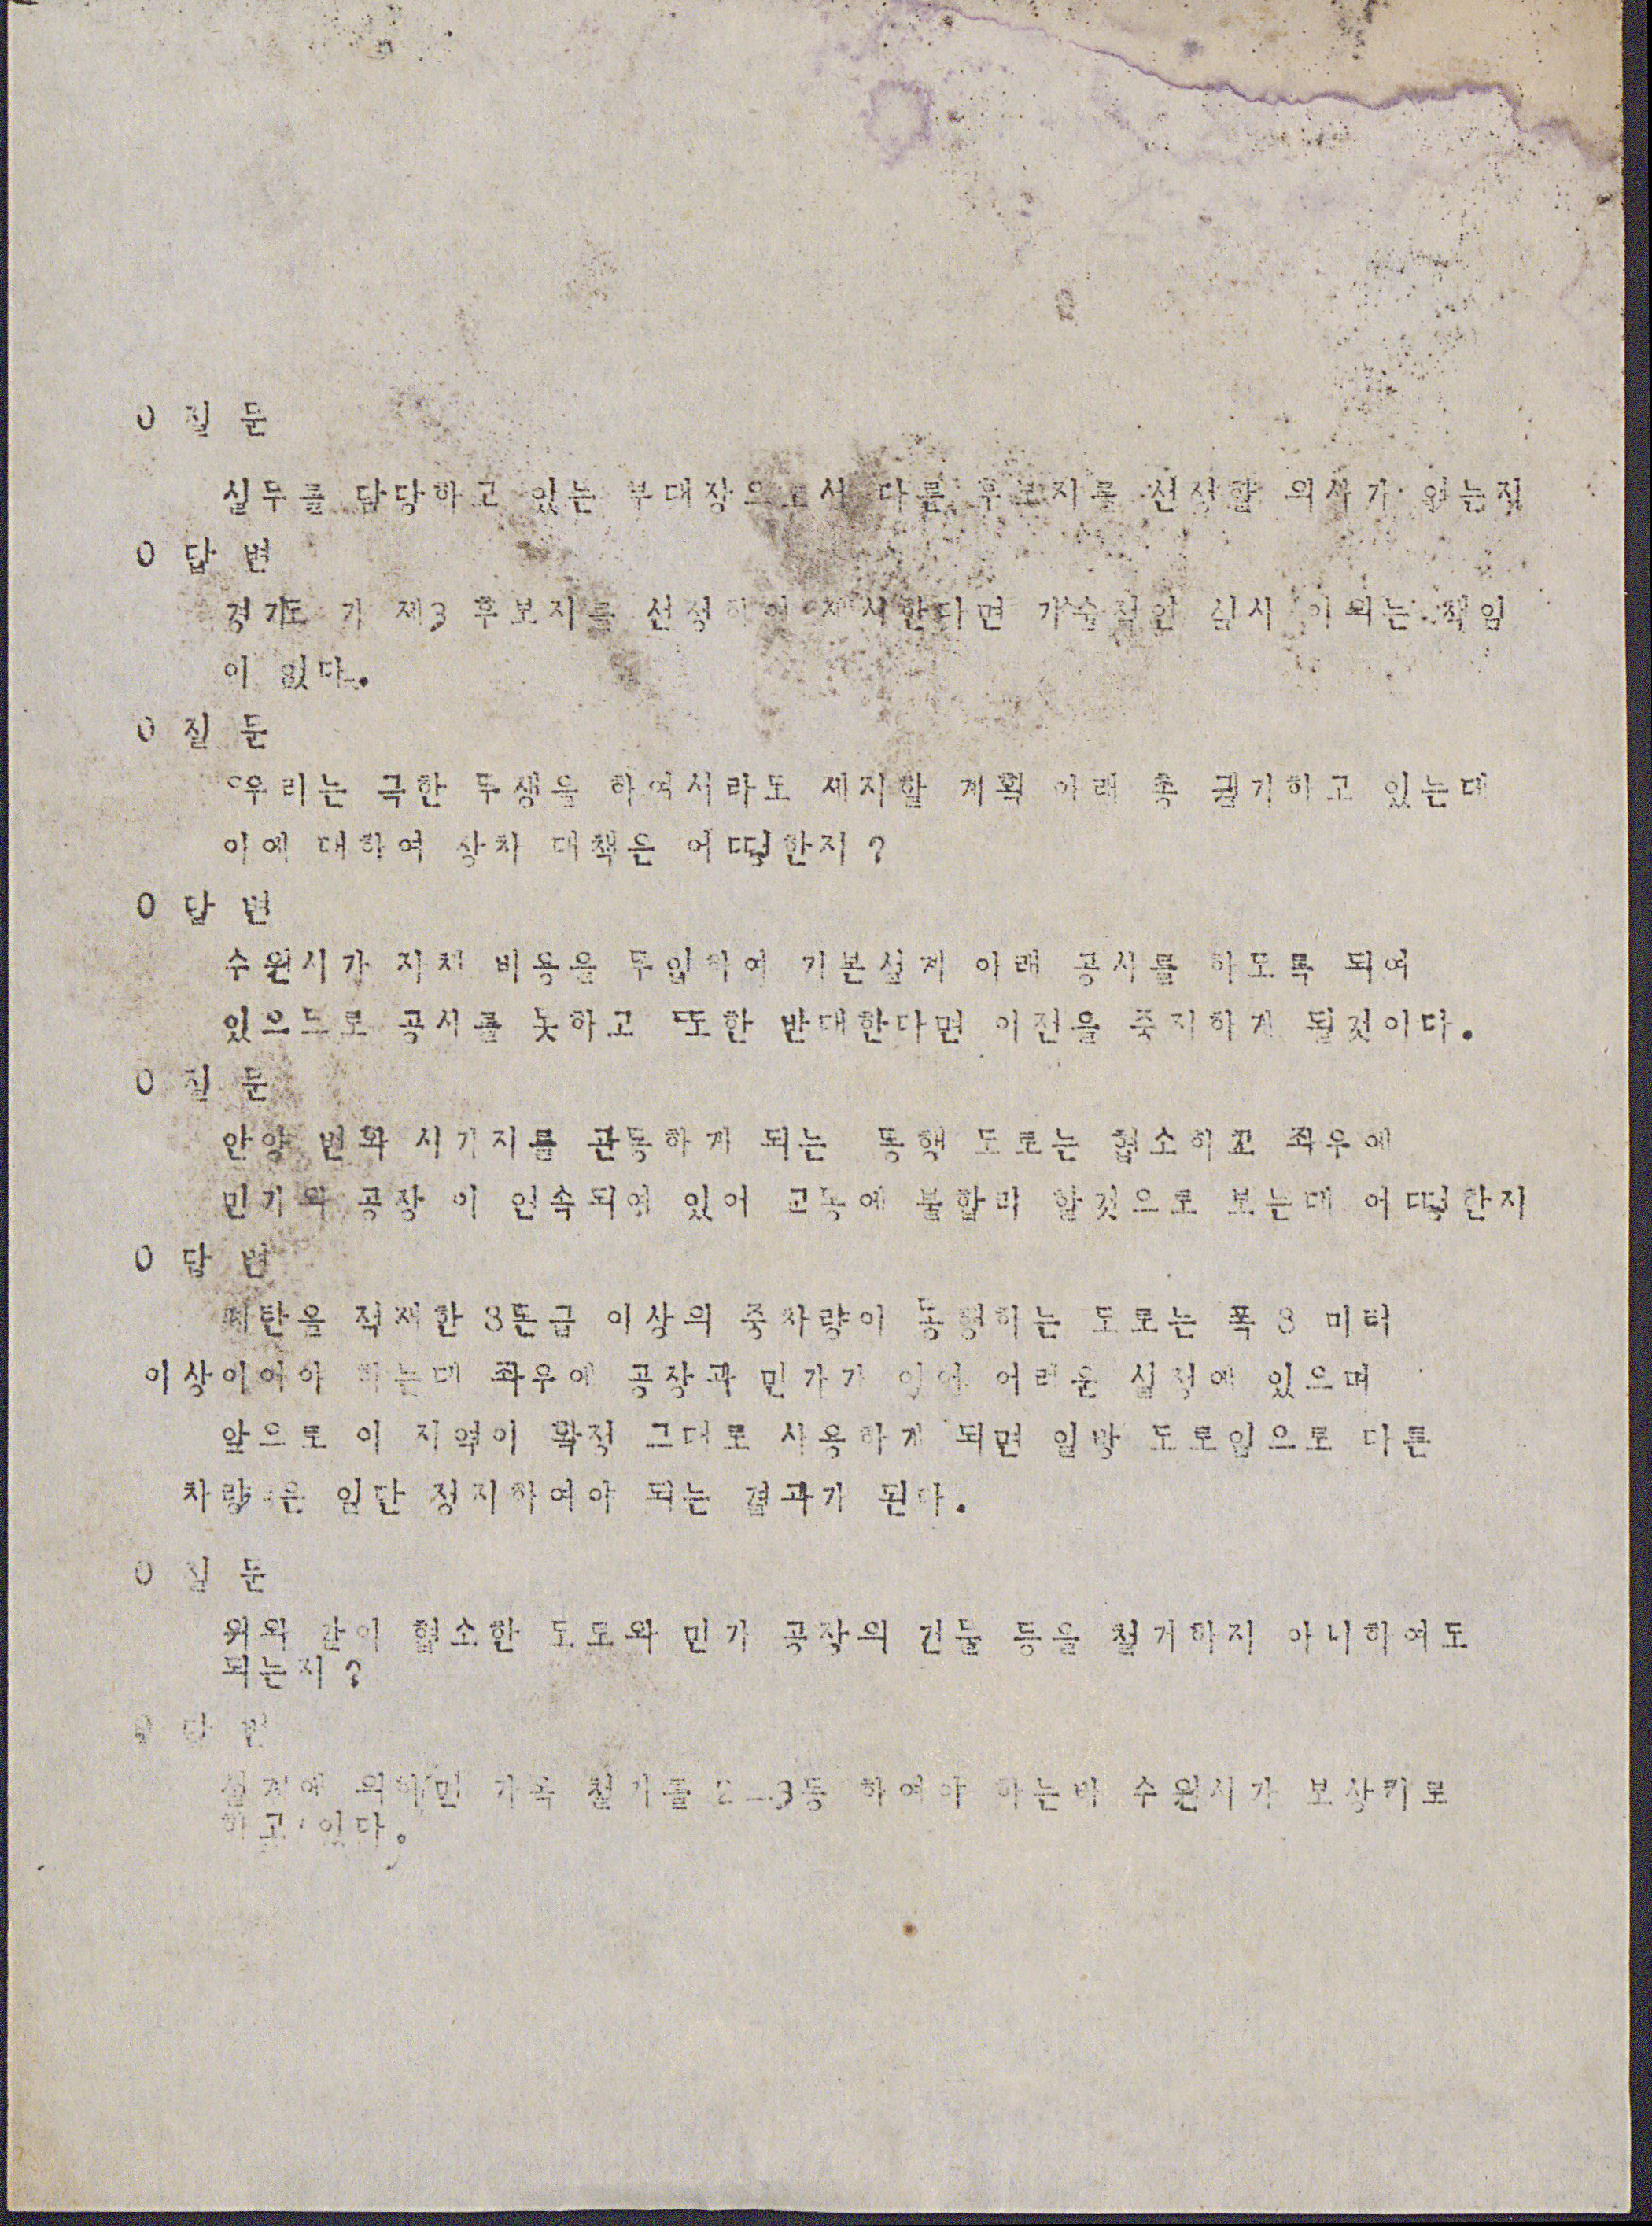 O 질 문
실무를 담당하고 있는 부대장으로서 다른 후보지를 선정할 의사가 없는지
O 답 변
경기도 가 제3 후보지를 선정하여 제시한다면 기술적인 심사 이외는 책임
이 없다.
O 질 문
우리는 극한 투쟁을 하여서라도 제지할 계획 아래 총 궐기하고 있는데
이에 대하여 장차 대책은 어떻한지?
O 답 변
수원시가 자체 비용을 투입하여 기본설계 아래 공사를 하도록 되여
있으므로 공사를 못하고 또한 반대한다면 이전을 중지하게 될것이다.
O 질 문
안양 번화 시가지를 관통하게 되는 통행 도로는 협소하고 좌우에
민가와 공장 이 연속되여 있어 교통에 불합리 할것으로 보는데 어떻한지
O 답 변
폭탄을 적재한 3톤급 이상의 중차량이 통행하는 도로는 폭 8 미터
이상이여야 하는데 좌우에 공장과 민가가 있어 어려운 실정에 있으며
앞으로 이 지역이 확정 그대로 사용하게 되면 일방 도로임으로 다른
차량 은 일단 정지하여야 되는 결과가 된다.
O 질 문
위와 같이 협소한 도로와 민가 공장의 건물 등을 철거하지 아니하여도
되는지?
O 답 변
설계에 의하면 가옥 철거를 2-3동 하여야 하는바 수원시가 보상키로
하고 있다.